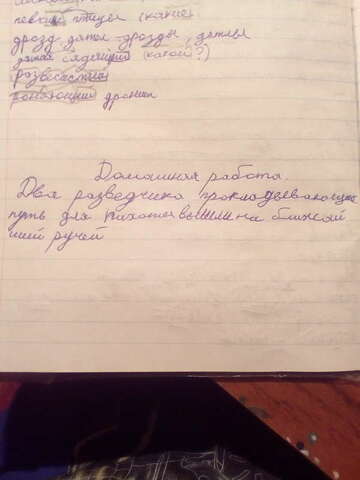 певчие птицы (какие)
дрозд дятел дрозды, дятлы
дятел сидевший (какой?)
Домашная работа.
Два разведчика прокладывающие
путь для пихоты вышли на ближай
ший ручей